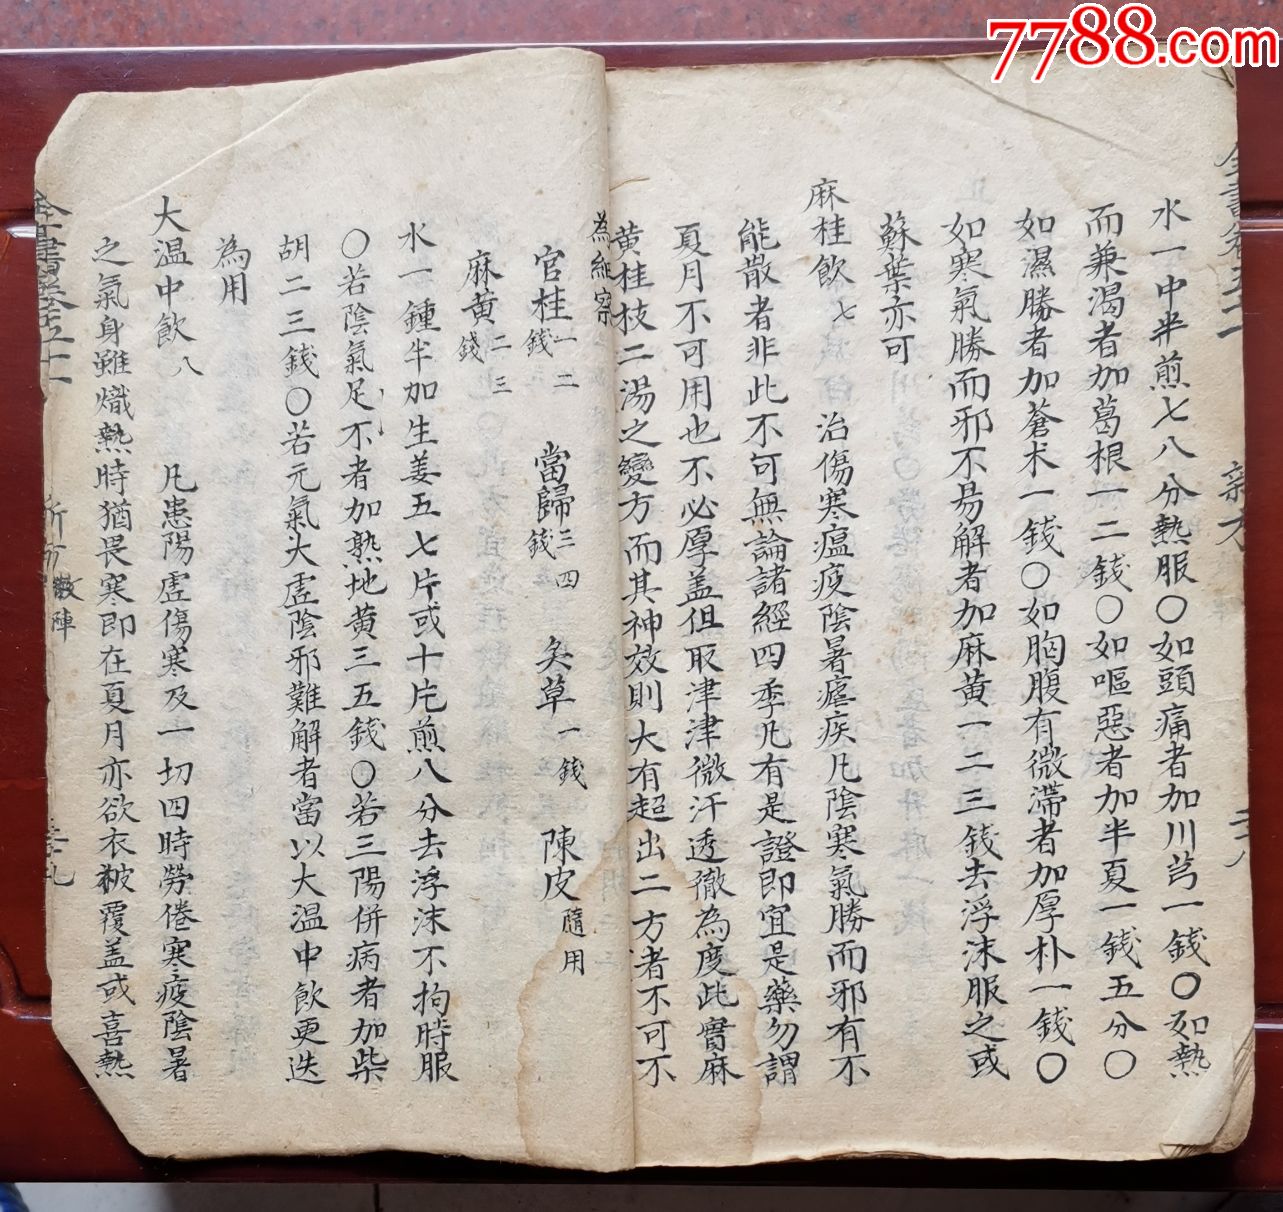 7788.com
水一中半煎七八分熱服〇如頭痛者加川芎一錢〇如熱
而兼渴者加葛根一二錢〇如嘔惡者加半夏一錢五分〇
如濕勝者加蒼术一錢〇如胸腹有微滯者加厚朴一錢〇
如寒氣勝而邪不易解者加麻黄一二三錢去浮沫服之或
蘇葉亦可
麻桂飲 七 治傷寒瘟疫陰暑瘧疾凡陰寒氣勝而邪有不
能散者非此不可無論諸經四季凡有是證即宜是藥勿謂
夏月不可用也不必厚盖但取津津微汗透徹為度此實麻
黄桂枝二湯之變方而其神效則大有超出二方者不可不
為細察
官桂 一二錢 當歸 三四錢 炙草 一錢 陳皮 隨用
麻黄 二三錢
水一鍾半加生姜五七片或十片煎八分去浮沫不拘時服
〇若陰氣足不者加熟地黄三五錢〇若三陽併病者加柴
胡二三錢〇若元氣大虛陰邪難解者當以大溫中飲更迭
為用
大溫中飲 八 凡患陽虛傷寒及一切四時勞倦寒疫陰暑
之氣身雖熾熱時猶畏寒即在夏月亦欲衣被覆盖或喜熱
全書卷五十一 新方 散陣